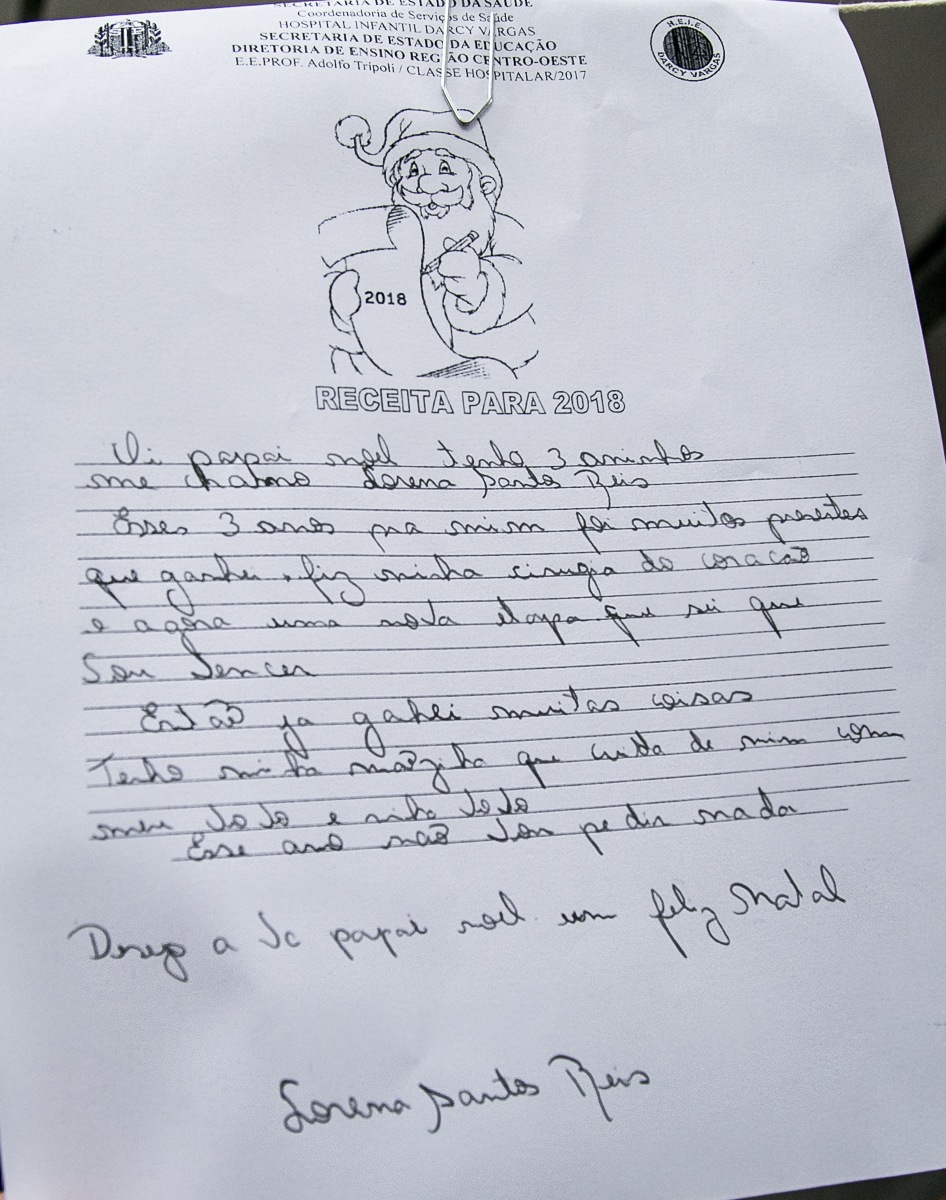 SECRETARIA DE ESTADO DA SAÚDE
Coordenadoria de Serviços de Saúde
HOSPITAL INFANTIL DARCY VARGAS
SECRETARIA DE ESTADO DA EDUCAÇÃO
DIRETORIA DE ENSINO REGIÃO CENTRO-OESTE
E.E.PROF. Adolfo Tripoli / CLASSE HOSPITALAR/2017
H.E.I.E.
DARCY VARGAS
2018
RECEITA PARA 2018
Oi papai noel tenho 3 aninhos
me chamo Lorena Santos Reis
Esses 3 anos pra mim foi muitos presentes
que ganhei, fiz minha cirugia do coracão
e agora uma nova etapa que sei que
Sou Vencer
Então ja gahei muitas coisas
Tenho minha mãezinha que cuida de mim com
meu VoVo e minha VoVo
Esse ano não Vou pedir nada
Desejo a Vc papai noel um feliz Natal
Lorena Santos Reis